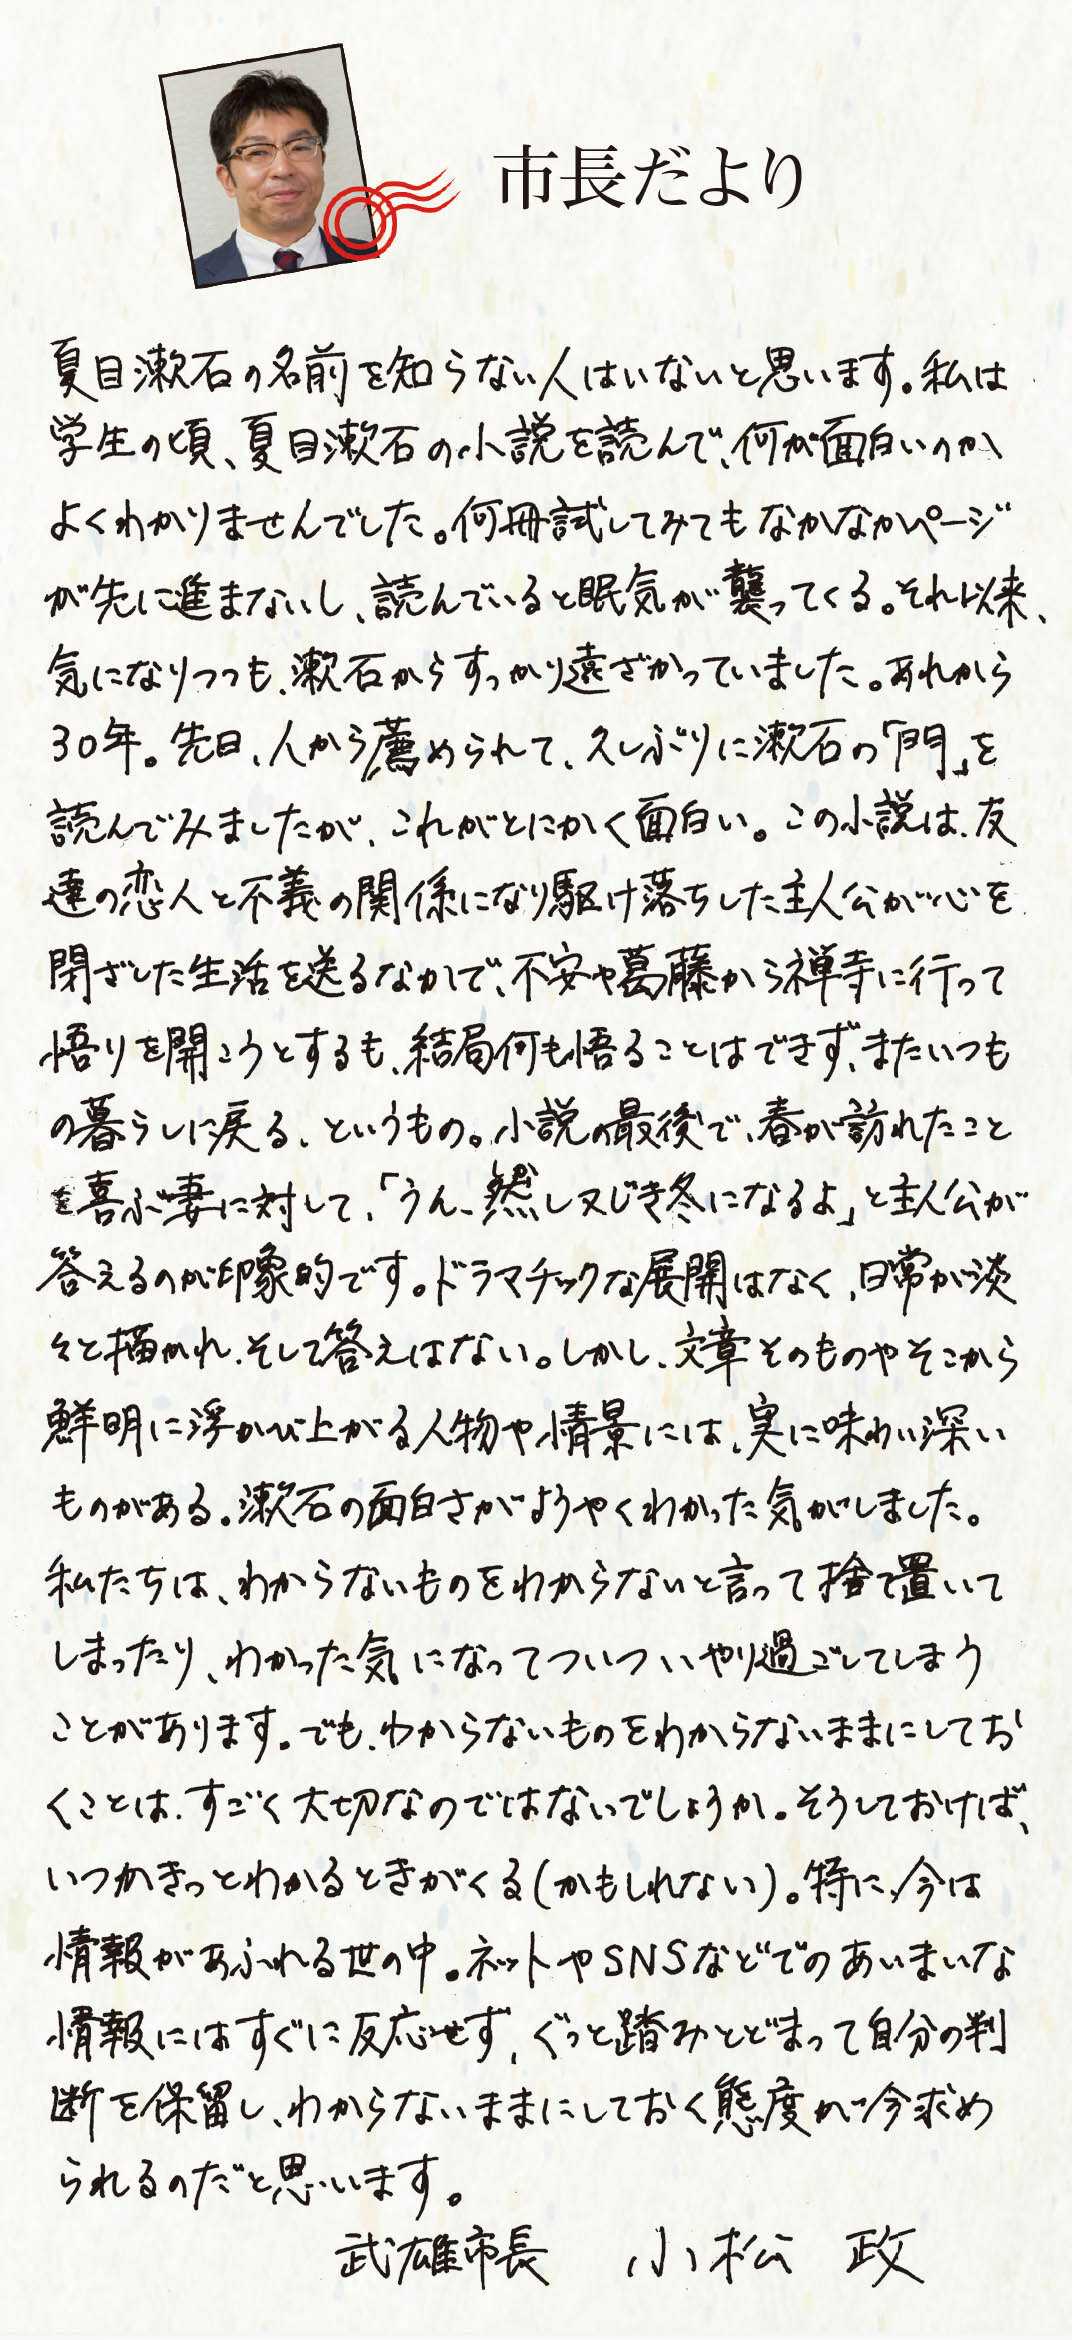 市長だより
夏目漱石の名前を知らない人はいないと思います。私は
学生の頃、夏目漱石の小説を読んで、何が面白いのか
よくわかりませんでした。何冊試してみてもなかなかページ
が先に進まないし、読んでいると眠気が襲ってくる。それ以来、
気になりつつも、漱石からすっかり遠ざかっていました。あれから
30年。先日、人から薦められて、久しぶりに漱石の「門」を
読んでみましたが、これがとにかく面白い。この小説は、友
達の恋人と不義の関係になり駆け落ちした主人公が心を
閉ざした生活を送るなかで、不安や葛藤から禅寺に行って
悟りを開こうとするも、結局何も悟ることはできず、またいつも
の暮らしに戻る、というもの。小説の最後で、春が訪れたこと
を喜ぶ妻に対して、「うん、然し又じき冬になるよ」と主人公が
答えるのが印象的です。ドラマチックな展開はなく、日常が淡
々と描かれ、そして答えはない。しかし、文章そのものやそこから
鮮明に浮かび上がる人物や情景には、実に味わい深い
ものがある。漱石の面白さがようやくわかった気がしました。
私たちは、わからないものをわからないと言って捨て置いて
しまったり、わかった気になってついついやり過ごしてしまう
ことがあります。でも、わからないものをわからないままにしてお
くことは、すごく大切なのではないでしょうか。そうしておけば、
いつかきっとわかるときがくる(かもしれない)。特に、今は
情報があふれる世の中。ネットやSNSなどでのあいまいな
情報にはすぐに反応せず、ぐっと踏みとどまって自分の判
断を保留し、わからないままにしておく態度が今求め
られるのだと思います。
武雄市長 小松 政